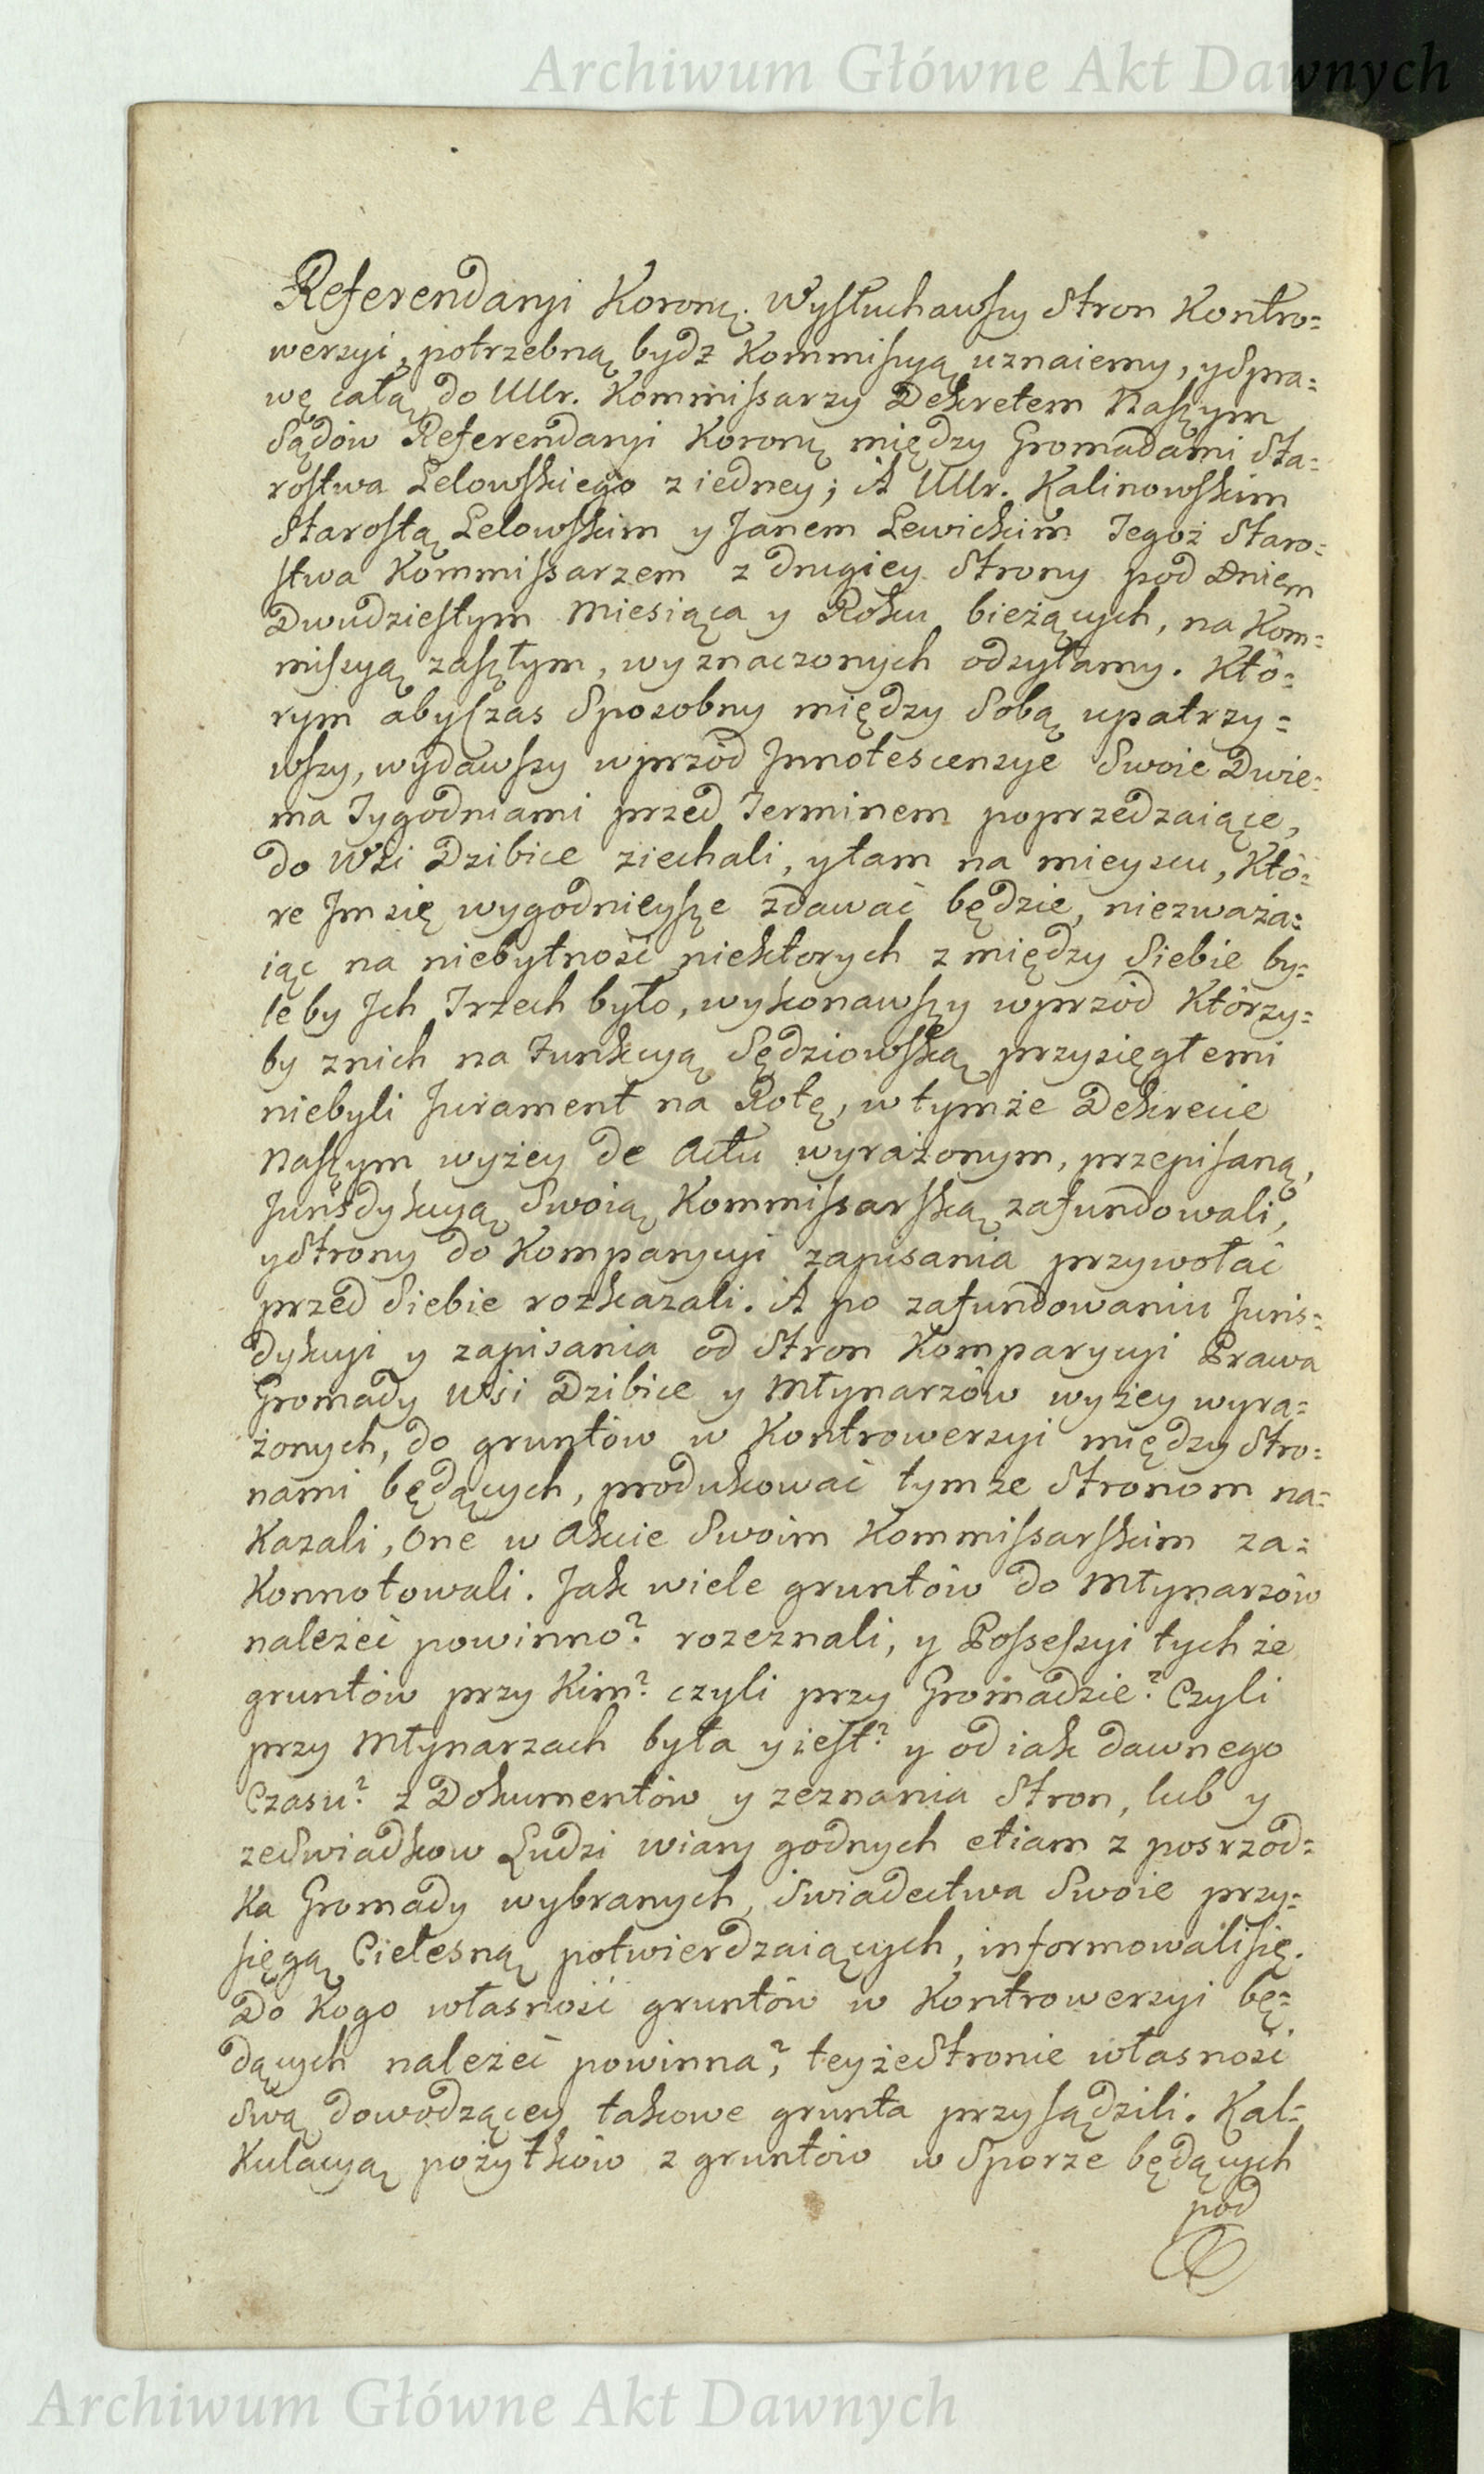 Archiwum Główne Akt Dawnych
Referendaryi Koronę. Wysłuchawszy Stron Kontro=
wersyi, potrzebną bydz Kommissyą uznaiemy, y Spra=
wę całą do Ullr. Kommissarzy Dekretem Naszym
Sądów Referendaryi Koronę między Gromadami Sta=
rostwa Lelowskiego z iedney; A Ullr. Kalinowskim
Starostą Lelowskim y Janem Lewickim Tegoż Staro=
stwa Kommissarzem z drugiey Strony pod Dniem
Dwudziestym Miesiąca y Roku bieżących, na Kom=
missyą zaszłym, wyznaczonych odsyłamy. Któ=
rym aby czas Sposobny między Sobą upatrzy=
wszy, wydawszy wprzód Innotescensye Swoie Dwie=
ma Tygodniami przed Terminem poprzedzaiące,
do Wsi Dzibice ziechali, y tam na mieyscu, Któ=
re Im się wygodnieysze zdawać będzie, niezważa=
iąc na niebytność niektorych z między Siebie by=
leby Ich Trzech było, wykonawszy wprzód Którzy=
by z nich na Funkcyą Sędziowską przysięgłemi
niebyli Jurament na Rotę, w tymże Dekrecie
Naszym wyżey de Actu wyrażonym, przepisaną,
Jurisdykcyą Swoią Kommissarską zafundowali,
y Strony do Komparycyi zapisania przywołać
przed Siebie rozkazali. A po zafundowaniu Juris=
dykcyi y zapisania od Stron Komparycyi Prawa
Gromady Wsi Dzibice y Młynarzów wyżey wyra=
żonych, do gruntów w Kontrowersyi między Stro=
nami będących, produkować tymże Stronom na=
Kazali, One w Akcie Swoim Kommissarskim za=
Konnotowali. Jak wiele gruntów do Młynarzów
należeć powinno? rozeznali, y Possessyi tychże
gruntów przy Kim? czyli przy Gromadzie? Czyli
przy Młynarzach była y iest? y od iak dawnego
Czasu? z Dokumentów y zeznania Stron, lub y
ze Swiadkow Ludzi wiary godnych etiam z posrzod=
Ka Gromady wybranych, Swiadectwa Swoie przy=
sięgą Cielesną potwierdzaiących, informowali się.
Do Kogo własność gruntów w Kontrowersyi bę=
dących należeć powinna?, teyże Stronie własność
Swą dowodzącey takowe grunta przysądzili. Kal=
Kulacyą pożytków z gruntów w Sporze będących
pod
Archiwum Główne Akt Dawnych